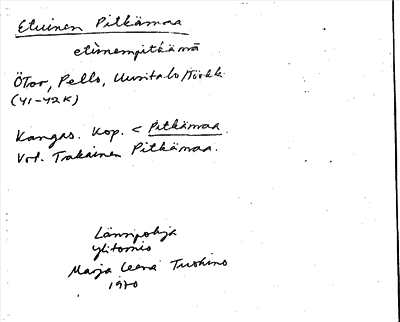 Etuinen Pitkämaa
etinempitkämā
ÖTor, Pello, Uusitalo/Törhk.
(41-42K)
Kangas. Kop. < Pitkämaa.
Vrt. Takainen Pitkämaa.
Länsipohja
Ylitornio
Marja Leena Tuohino
1970